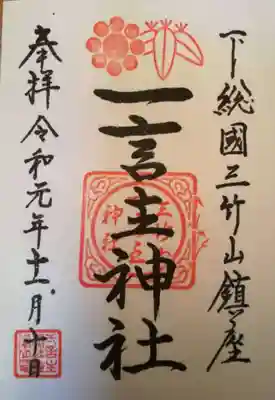 下総國三竹山鎮座
一言主神社
奉拝令和元年十二月十日